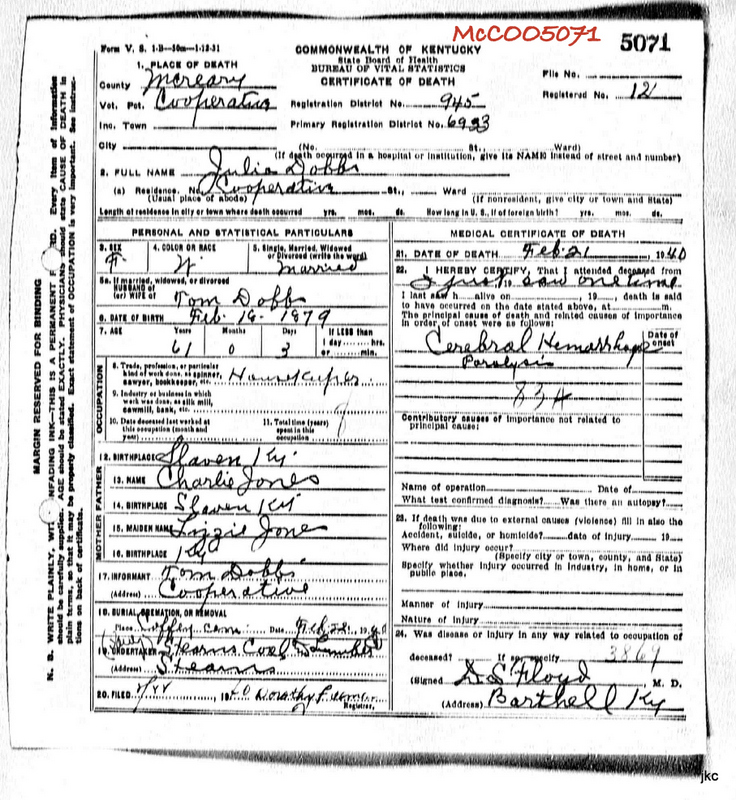 McCOO5071
5071
Form V. S. 1-B—50m—1-12-31
COMMONWEALTH OF KENTUCKY
State Board of Health
BUREAU OF VITAL STATISTICS
CERTIFICATE OF DEATH
1. PLACE OF DEATH
County McCreary
Vot. Pct. Cooperative
Inc. Town
City (No. St., Ward)
File No.
Registered No. 12
Registration District No. 945
Primary Registration District No. 6923
(If death occurred in a hospital or institution, give its NAME instead of street and number)
2. FULL NAME Julia Dobbs
(a) Residence. No. Cooperative St., Ward
(Usual place of abode) (If nonresident, give city or town and State)
Length of residence in city or town where death occurred yrs. mos. ds. How long in U. S., if of foreign birth? yrs. mos. ds.
PERSONAL AND STATISTICAL PARTICULARS
3. SEX 4. COLOR OR RACE 5. Single, Married, Widowed
or Divorced (write the word)
F W Married
5a. If married, widowed, or divorced
HUSBAND of
(or) WIFE of Tom Dobbs
6. DATE OF BIRTH Feb. 1879
7. AGE Years Months Days If LESS than
1 day hrs.
or min.
61 0 3
OCCUPATION
8. Trade, profession, or particular
kind of work done, as spinner,
sawyer, bookkeeper, etc. Housekeeper
9. Industry or business in which
work was done, as silk mill,
sawmill, bank, etc.
10. Date deceased last worked at
this occupation (month and
year)
11. Total time (years)
spent in this
occupation
12. BIRTHPLACE Slaven Ky
MOTHER FATHER
13. NAME Charlie Jones
14. BIRTHPLACE Slaven Ky
15. MAIDEN NAME Lizzie Jone
16. BIRTHPLACE Ky
17. INFORMANT Tom Dobbs
(Address) Cooperative
18. BURIAL, CREMATION, OR REMOVAL
Place Coffey Cem. Date Feb 22 1940
19. UNDERTAKER Stearns Coal & Lumber
(Address) Stearns
20. FILED 1940 Dorothy
Registrar.
MEDICAL CERTIFICATE OF DEATH
21. DATE OF DEATH Feb. 21 1940
22. I HEREBY CERTIFY, That I attended deceased from
I just saw one time
I last saw h alive on , 19 , death is said
to have occurred on the date stated above, at m.
The principal cause of death and related causes of importance
in order of onset were as follows:
Date of
onset
Cerebral Hemorrhage
Paralysis
83A
Contributory causes of importance not related to
principal cause:
Name of operation Date of
What test confirmed diagnosis? Was there an autopsy?
23. If death was due to external causes (violence) fill in also the
following:
Accident, suicide, or homicide? date of injury 19
Where did injury occur?
(Specify city or town, county, and State)
Specify whether injury occurred in industry, in home, or in
public place.
Manner of injury
Nature of injury
24. Was disease or injury in any way related to occupation of
deceased? If so, specify 3869
(Signed D. S. Floyd, M. D.
(Address) Barthell Ky
MARGIN RESERVED FOR BINDING
N. B. WRITE PLAINLY, WITH UNFADING INK—THIS IS A PERMANENT RECORD. Every item of information
should be carefully supplied. AGE should be stated EXACTLY. PHYSICIANS should state CAUSE OF DEATH in
plain terms, so that it may be properly classified. Exact statement of OCCUPATION is very important. See instruc-
tions on back of certificate.
jkc